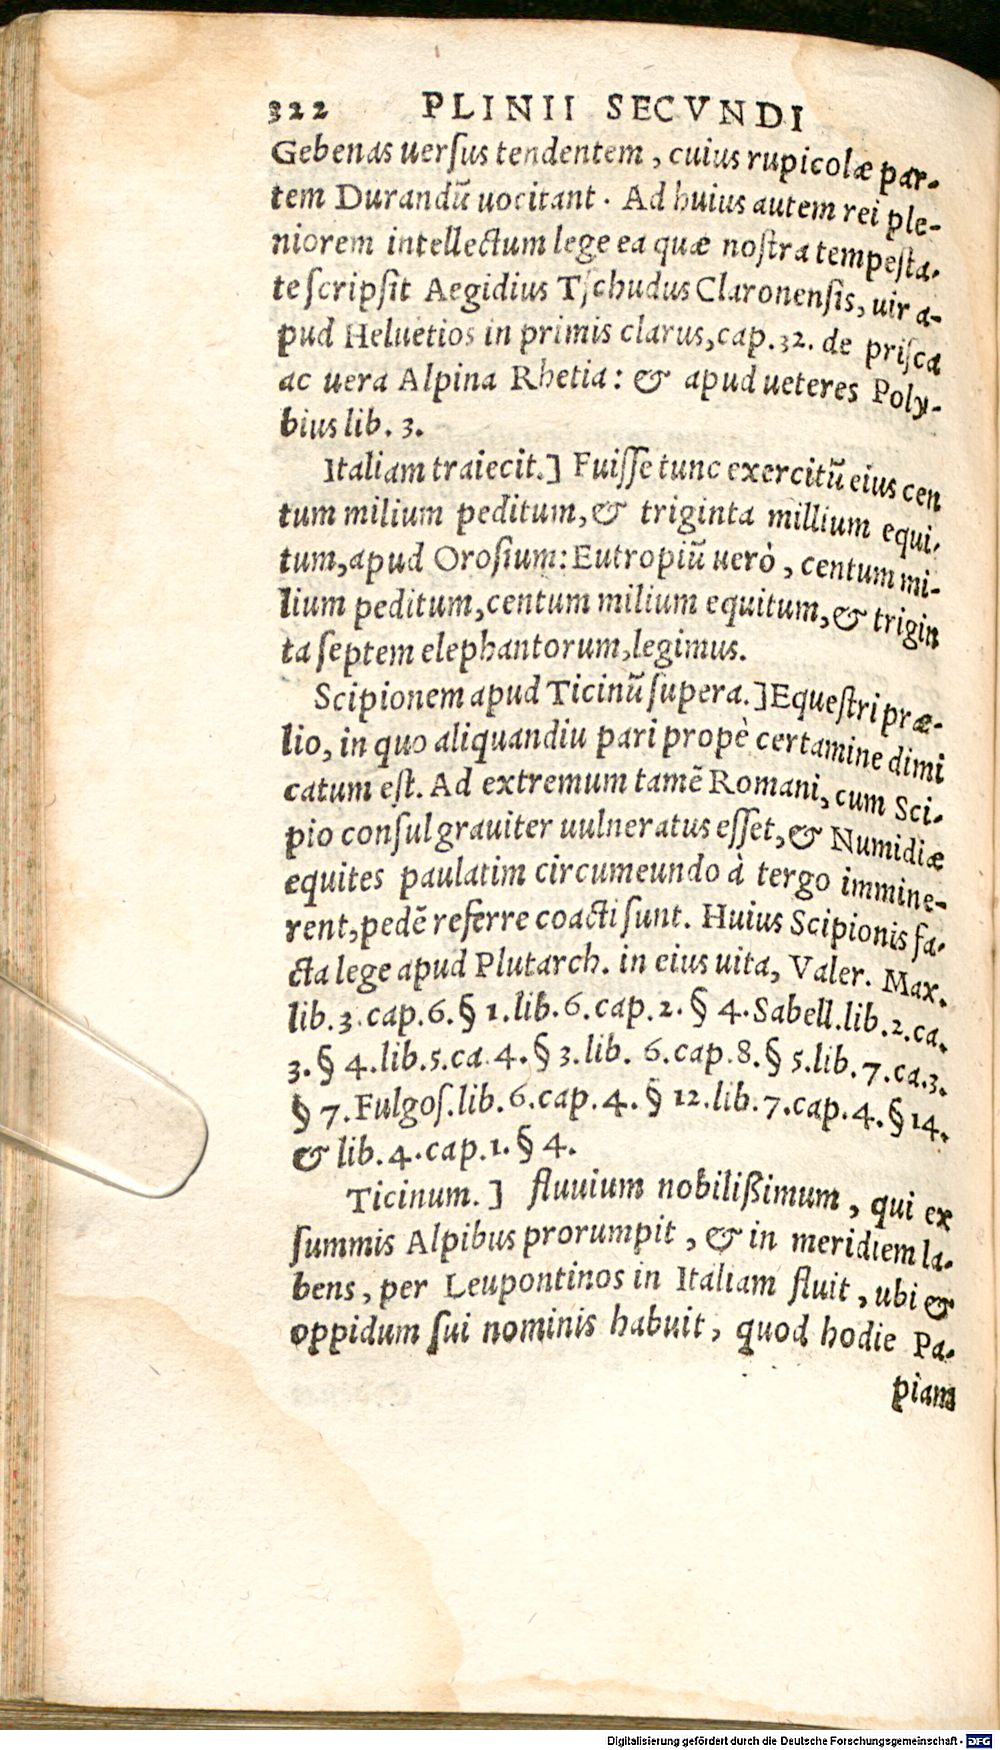 322 PLINII SECVNDI
Gebenas uerſus tendentem, cuius rupicolæ par-
tem Durandũ uocitant. Ad huius autem rei ple-
niorem intellectum lege ea quæ noſtra tempeſta-
te ſcripſit Aegidius Tſchudus Claronenſis, uir a-
pud Heluetios in primis clarus, cap. 32. de priſca
ac uera Alpina Rhetia: & apud ueteres Poly-
bius lib. 3.
Italiam traiecit.] Fuiſſe tunc exercitũ eius cen
tum milium peditum, & triginta millium equi-
tum, apud Oroſium: Eutropiũ uerò, centum mi-
lium peditum, centum milium equitum, & trigin
ta ſeptem elephantorum, legimus.
Scipionem apud Ticinũ ſupera.] Equeſtri præ-
lio, in quo aliquandiu pari propè certamine dimi
catum eſt. Ad extremum tamẽ Romani, cum Sci-
pio conſul grauiter uulneratus eſſet, & Numidiæ
equites paulatim circumeundo à tergo immine-
rent, pedẽ referre coacti ſunt. Huius Scipionis fa-
cta lege apud Plutarch. in eius uita, Valer. Max.
lib. 3. cap. 6. § 1. lib. 6. cap. 2. § 4. Sabell. lib. 2. ca.
3. § 4. lib. 5. ca. 4. § 3. lib. 6. cap. 8. § 5. lib. 7. ca. 3.
§ 7. Fulgoſ. lib. 6. cap. 4. § 12. lib. 7. cap. 4. § 14.
& lib. 4. cap. 1. § 4.
Ticinum.] fluuium nobilißimum, qui ex
ſummis Alpibus prorumpit, & in meridiem la-
bens, per Leupontinos in Italiam fluit, ubi &
oppidum ſui nominis habuit, quod hodie Pa-
piam
Digitalisierung gefördert durch die Deutsche Forschungsgemeinschaft - DFG